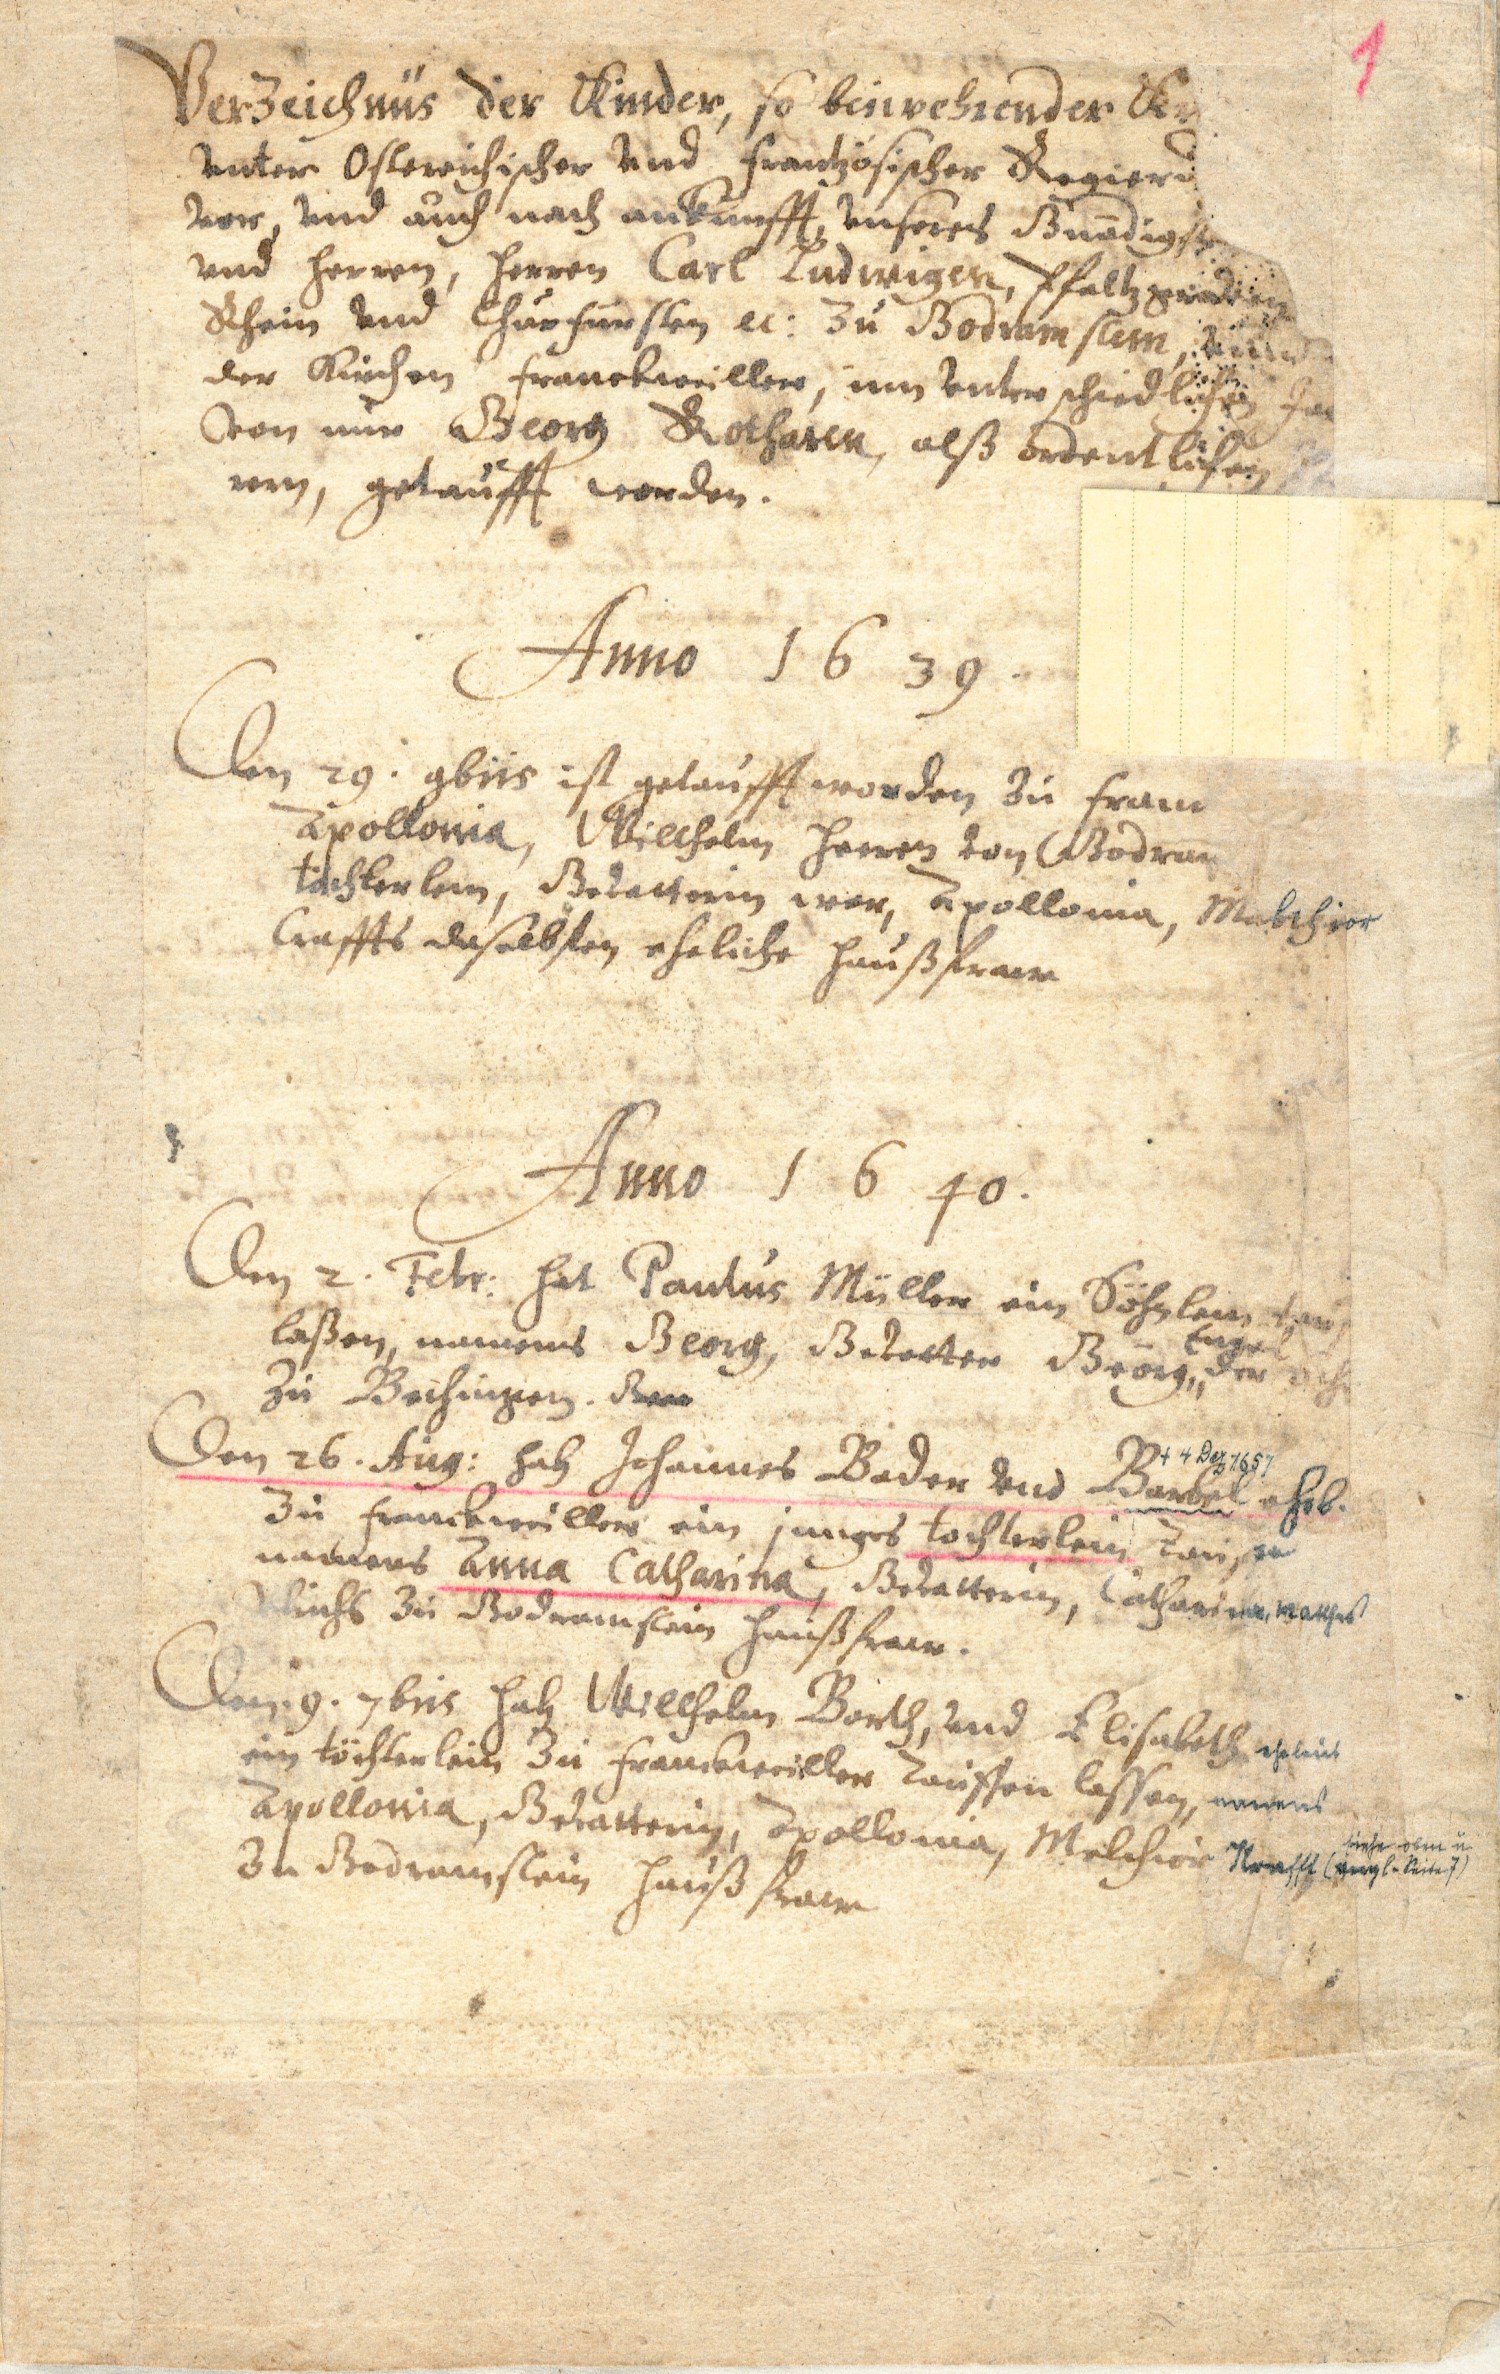 1
Verzeichnüs der Kinder, so beiwehrender
unter Ostereichischer und frantzösischer Regieru
vor, und auch nach ankunfft, unseres Gnädigst
und herren, herren Carl Ludwigen, Pfaltzgraven
Rhein und Churfursten ec: zu Bodramstein,
der Kirchen franckweiller, inn unterschiedlichen
von mir Georg Rotharen, alß ordentlichen
rrn, getaufft worden.
Anno 1639.
Den 29. 9bris ist getaufft worden zu fran
Apollonia, Willhelm herren von Bodram
töchterlein, Gevatterin war, Apollonia, Melchior
Craffts daselbsten eheliche haußfraw
Anno 1640.
Den 2. Febr: hat Paulus Müller ein Söhnlein tau
laßen, namens Georg, Gevatter Georg Engel, der
zu Bechingen.
+ 4 Dez 1657
Den 26. Aug: hatt Johannes Bader und Barbel ehel.
zu franckweiller ein junges töchterlein Tauffen
namens Anna Catharina, Gevatterin, Catharina, Mathes
zu Bodramstein haußfraw.
Den 9. 7bris hatt Willhelm Borth, und Elisabeth eheleut
ein töchterlein zu franckweiller Tauffen lassen, namens
Apollonia, Gevatterin, Apollonia, Melchior Krafft (siehe oben u. vergl. Seite 7)
zu Bodramstein haußfraw